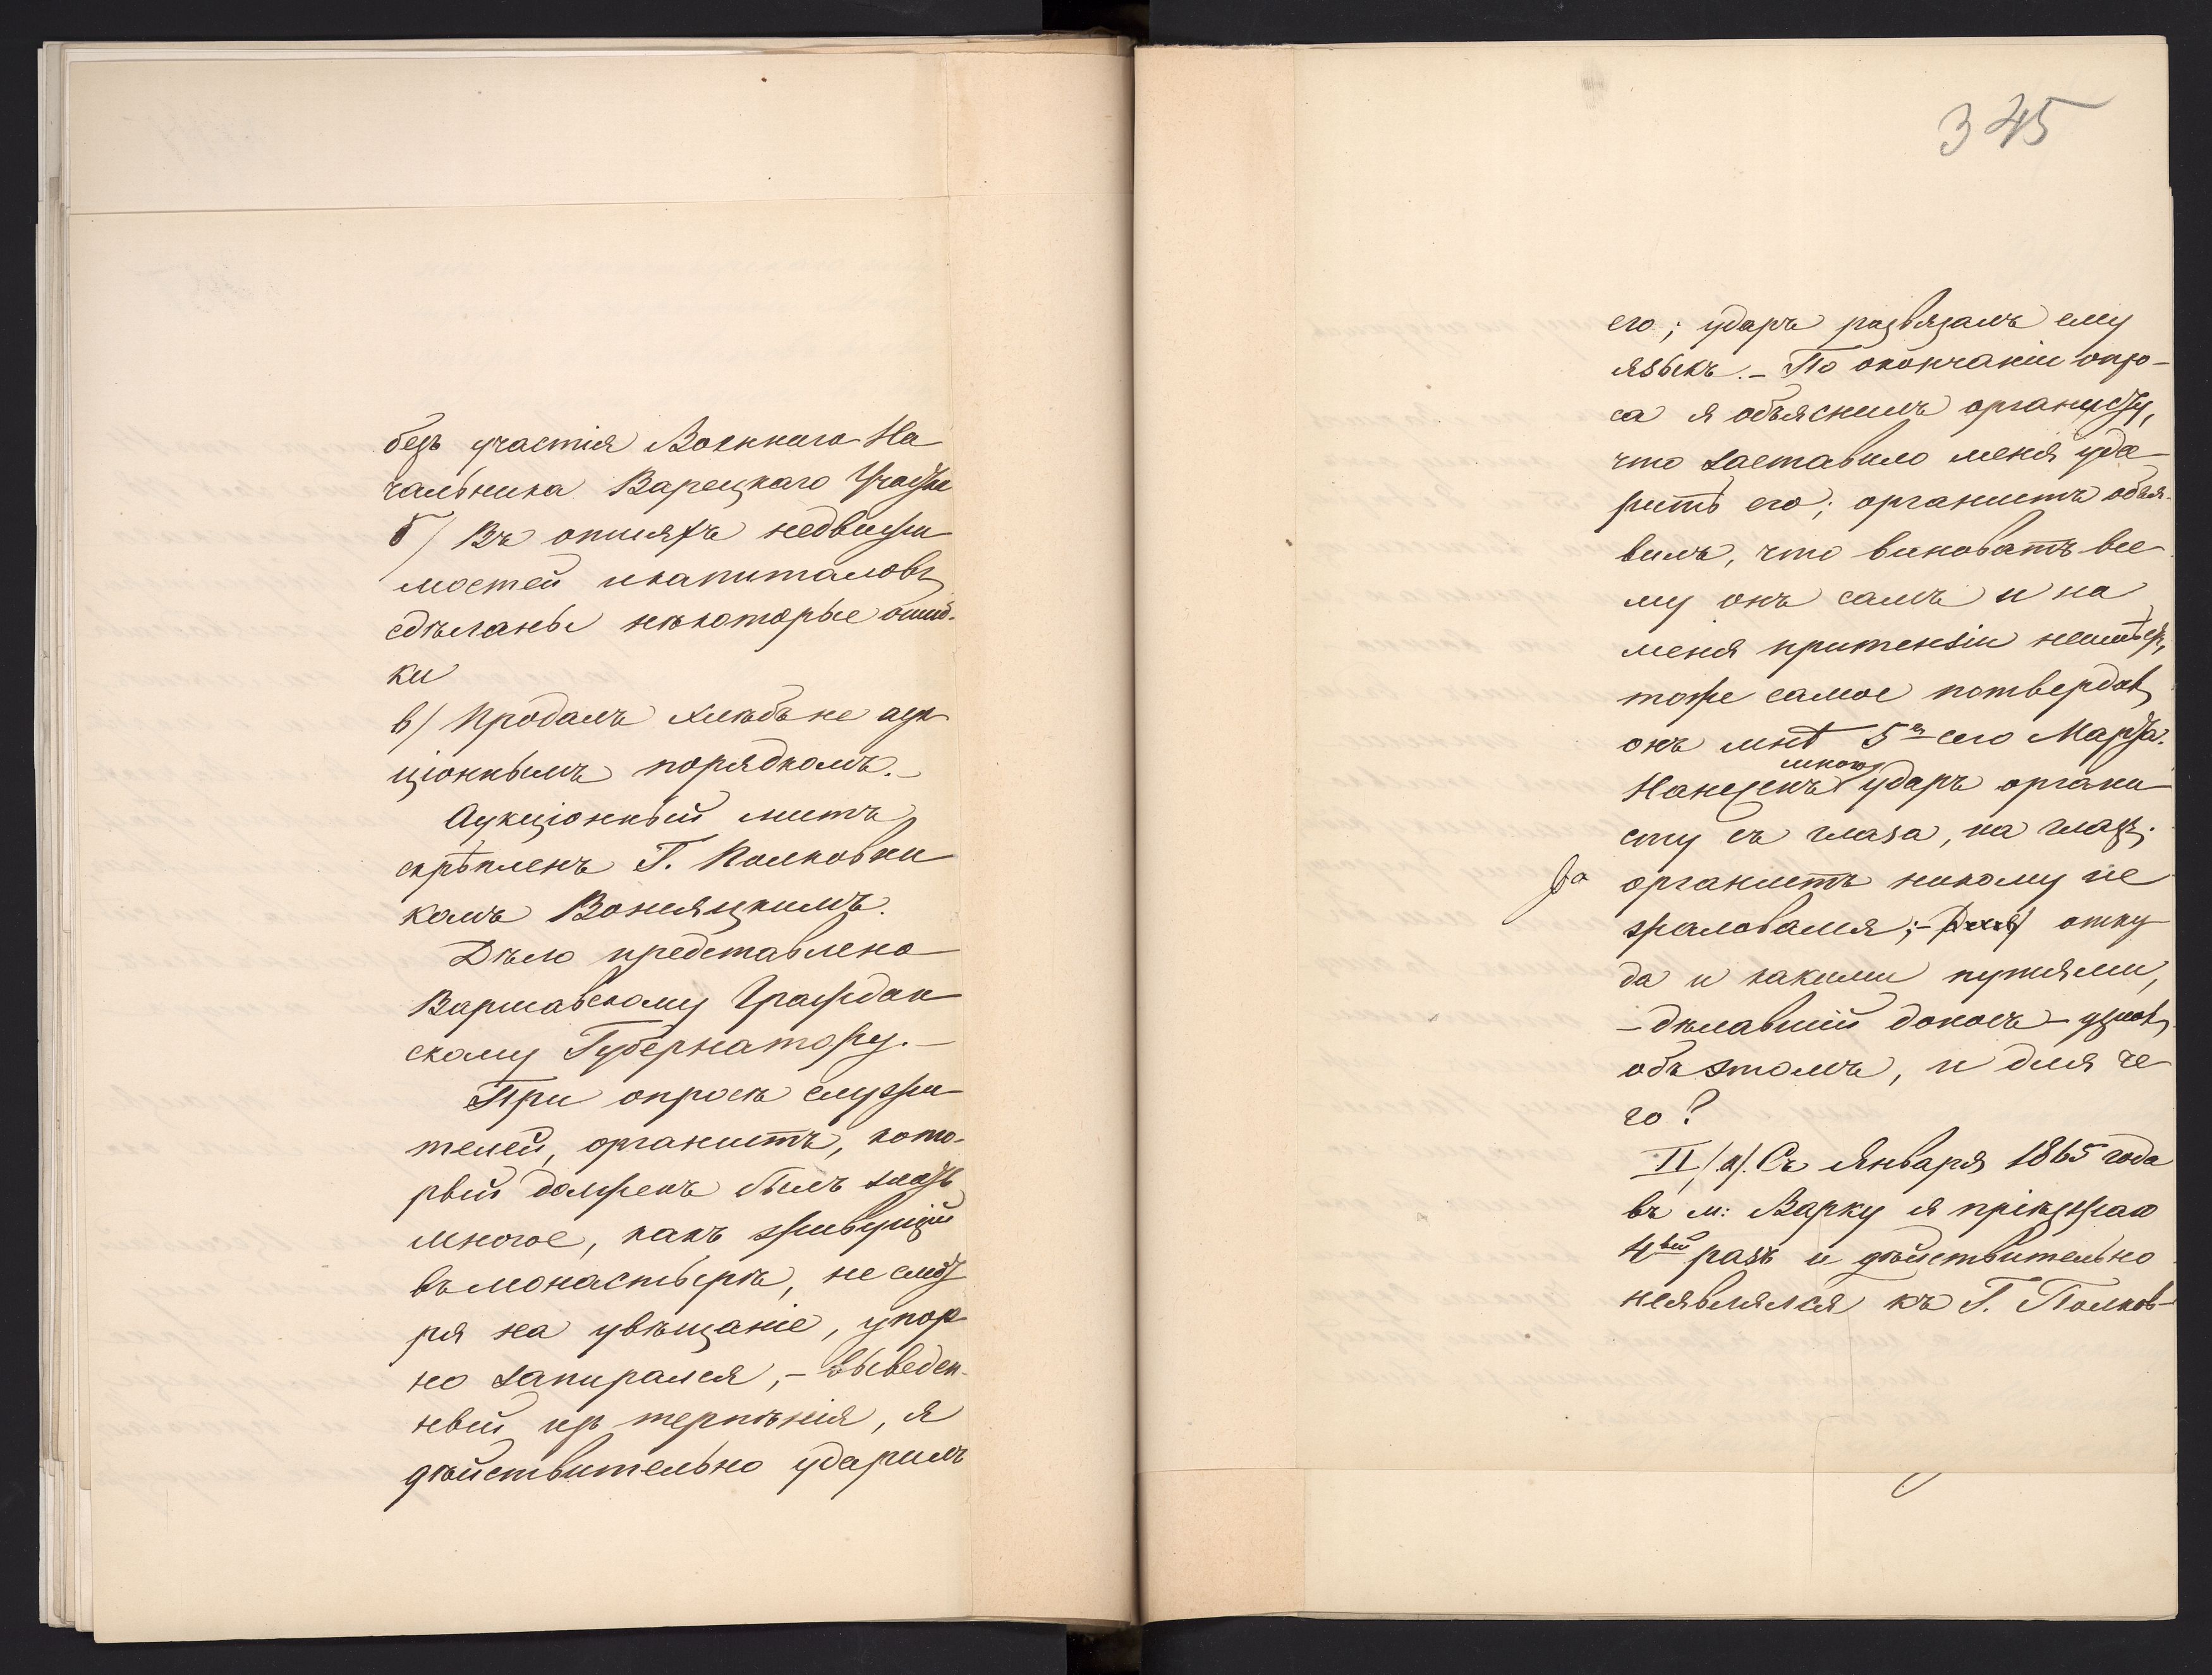 безъ участія Военнаго На
чальника Варецкаго Участка
б/ Въ описяхъ недвижи
мостей и капиталовъ
сдѣланы нѣкоторые ошиб-
ки
в/ Продалъ хлѣбъ не аук
ціоннымъ порядкомъ.—
Аукціонный листъ
скрѣпленъ Г. Полковни
комъ Воняцкимъ.
Дѣло представлено
Варшавскому Граждан
скому Губернатору.—
При опросѣ служи
телей, органистъ, кото-
рый долженъ былъ знать
многое, какъ живущій
въ монастырѣ, не смот
ря на увѣщаніе, упор
но запирался,— выведен-
ный изъ терпѣнія, я
дѣйствительно ударилъ
345
его; ударъ развязалъ ему
языкъ.— По окончаніи опро-
са я объяснилъ органисту,
что заставило меня уда-
рить его; органистъ объя-
вилъ, что виноватъ все-
му онъ самъ и на
меня притензіи неимѣетъ,
тоже самое потвердилъ
онъ мнѣ 5го сего Марта.
мною
Нанесенъ ударъ органи
сту съ глаза, на глазъ;
органистъ никому не
жаловался;— отку
да и какими путями,
— дѣлавшій доносъ — узналъ
объ этомъ, и для че
го?
II/ а/. Съ Января 1865 года
въ м: Варку я пріѣзжаю
4ый разъ и дѣйствительно
неявлялся къ Г. Полков-